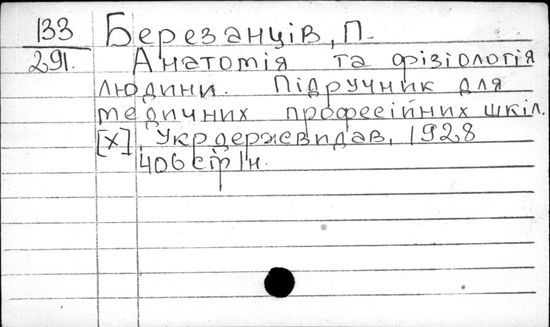 133 Березанців, П.
291. Анатомія та фізіологія
людини. Підручник для
медичних професійних шкіл.
[X], Укрдержвидав, 1928
406 стр Ін.